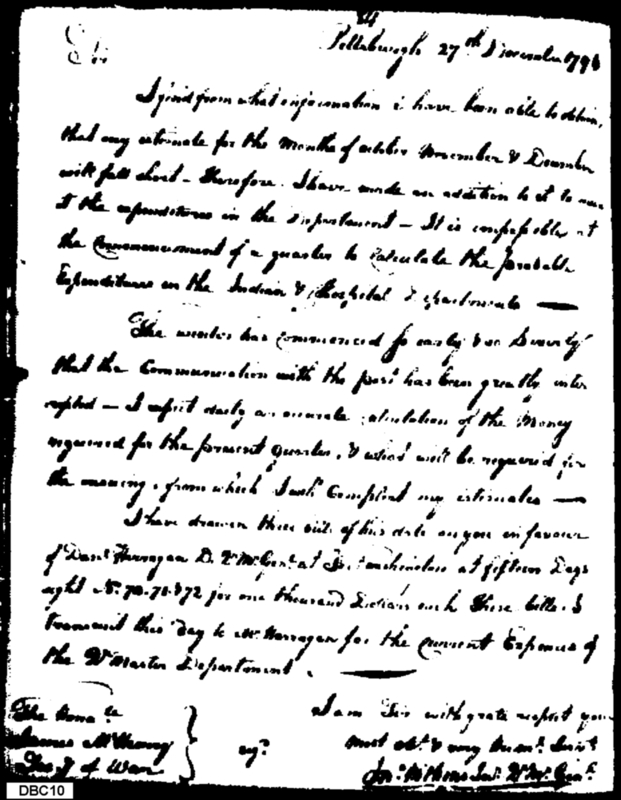 Sir
Pittsburgh 27th November 1796
I find from what information i have been able to obtain,
that my estimate for the Months of october November & December
will fall short – therefore I have made an addition to it to
at the expenditures in the Department – It is impossible at
the Commencement of a quarter to Calculate the probable
Expenditures in the Indian & Hospital Departments —
The winter has Commenced so early & so Severely
that the Communication with the posts has been greatly inter
rupted – I expect daily an accurate calculation of the Money
required for the present quarter, & what will be required for
the ensuing, from which I will Compleat my estimates —
I have drawn three bills of this date on you in favour
of Danl at at fifteen Days
sight No. 70. 71. & 72 for one thousand Dollars each These bills I
transmit this day to Mr. for the Current Expences of
the Qr Master Department. —
The Honble
James McHenry
Secy of War
I am Sir with grate respect your
most obt. & very Humb. Servt
Jno. Wilkins Junr. Qr. Mr. Genl.
DBC10